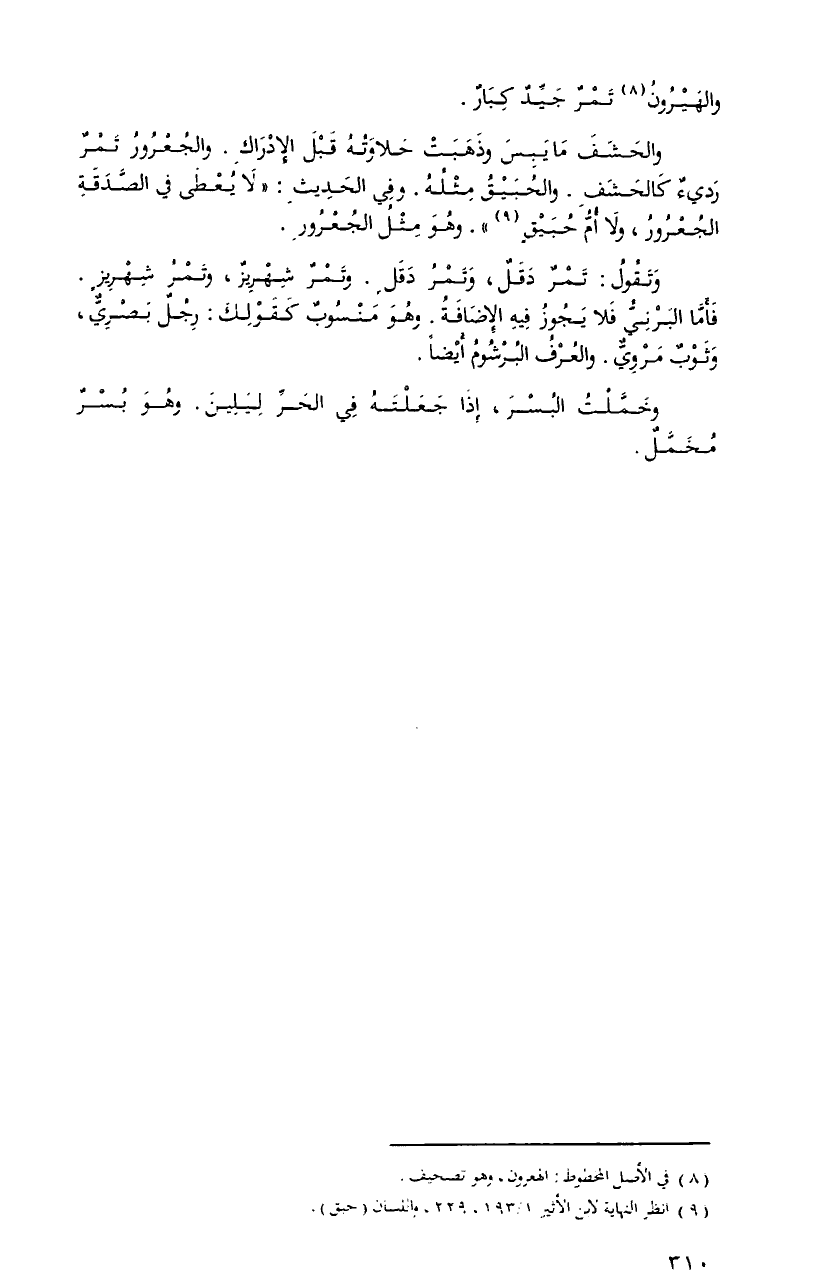 والهَيْرُونُ(٨) تَمْرٌ جَيِّدٌ كِبَارٌ .
والحَشَفَ مَا يَبِسَ وذَهَبَتْ حَلاوَتُهُ قَبْلَ الإِدْرَاكِ . والجُعْرُورُ تَمْرٌ
رَدِيءٌ كَالحَشَفِ . والحُبَيْقُ مِثْلُهُ . وفِي الحَدِيثِ : « لَا يُعْطَى في الصَّدَقَةِ
الجُعْرُورُ ، ولَا أُمُّ حُبَيْقٍ(٩) » . وهُوَ مِثْلُ الجُعْرُورِ .
وَتَقُولُ : تَمْرٌ دَقَلٌ ، وَتَمْرُ دَقَلٍ . وتَمْرٌ شِهْرِيزٌ ، وتَمْرُ شِهْرِيزٍ .
فَأَمَّا البَرْنِيُّ فَلا يَجُوزُ فيهِ الإِضَافَةُ . وهُوَ مَنْسُوبٌ كَقَوْلِكَ : رَجُلٌ بَصْرِيٌّ ،
وَثَوْبٌ مَرْوِيٌّ . والعُرْفُ البُرْشُومُ أَيْضاً .
وخَمَّلْتُ البُسْرَ ، إِذَا جَعَلْتَهُ فِي الحَرِّ لِيَلِينَ . وهُوَ بُسْرٌ
مُخَمَّلٌ .
( ٨ ) في الأصل المخطوط : الهعرون ، وهو تصحيف .
( ٩ ) انظر النهاية لابن الأثير ١/ ١٩٣ ، ٢٢٩ ، واللسان ( حبق ) .
٣١٠